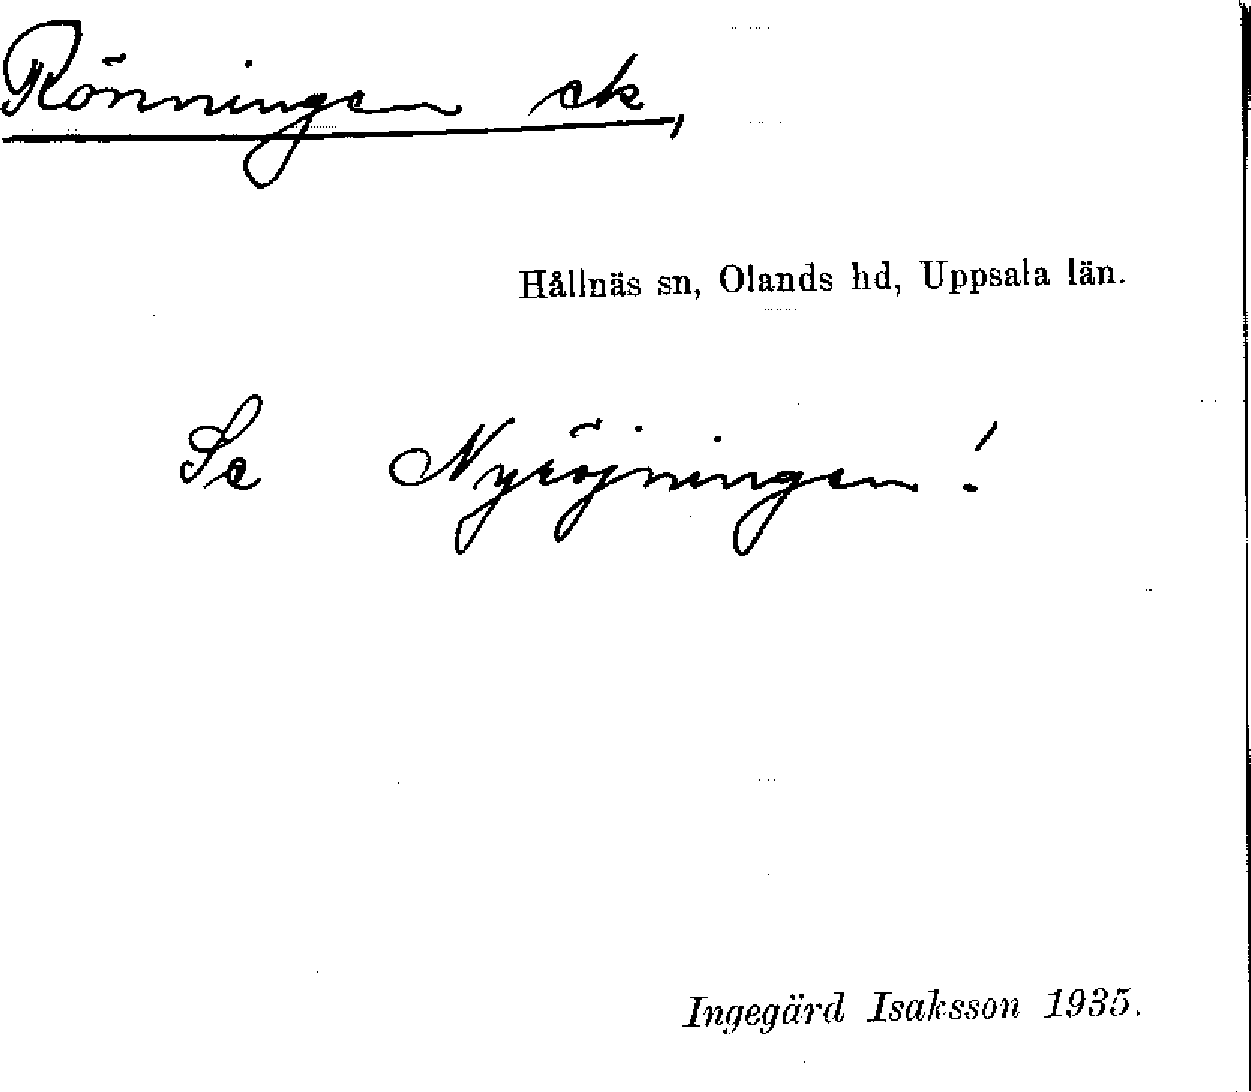 Rönningen ek,
Hållnäs sn, Olands hd, Uppsala län.
Se Nyröjningen!
Ingegärd Isaksson 1935.